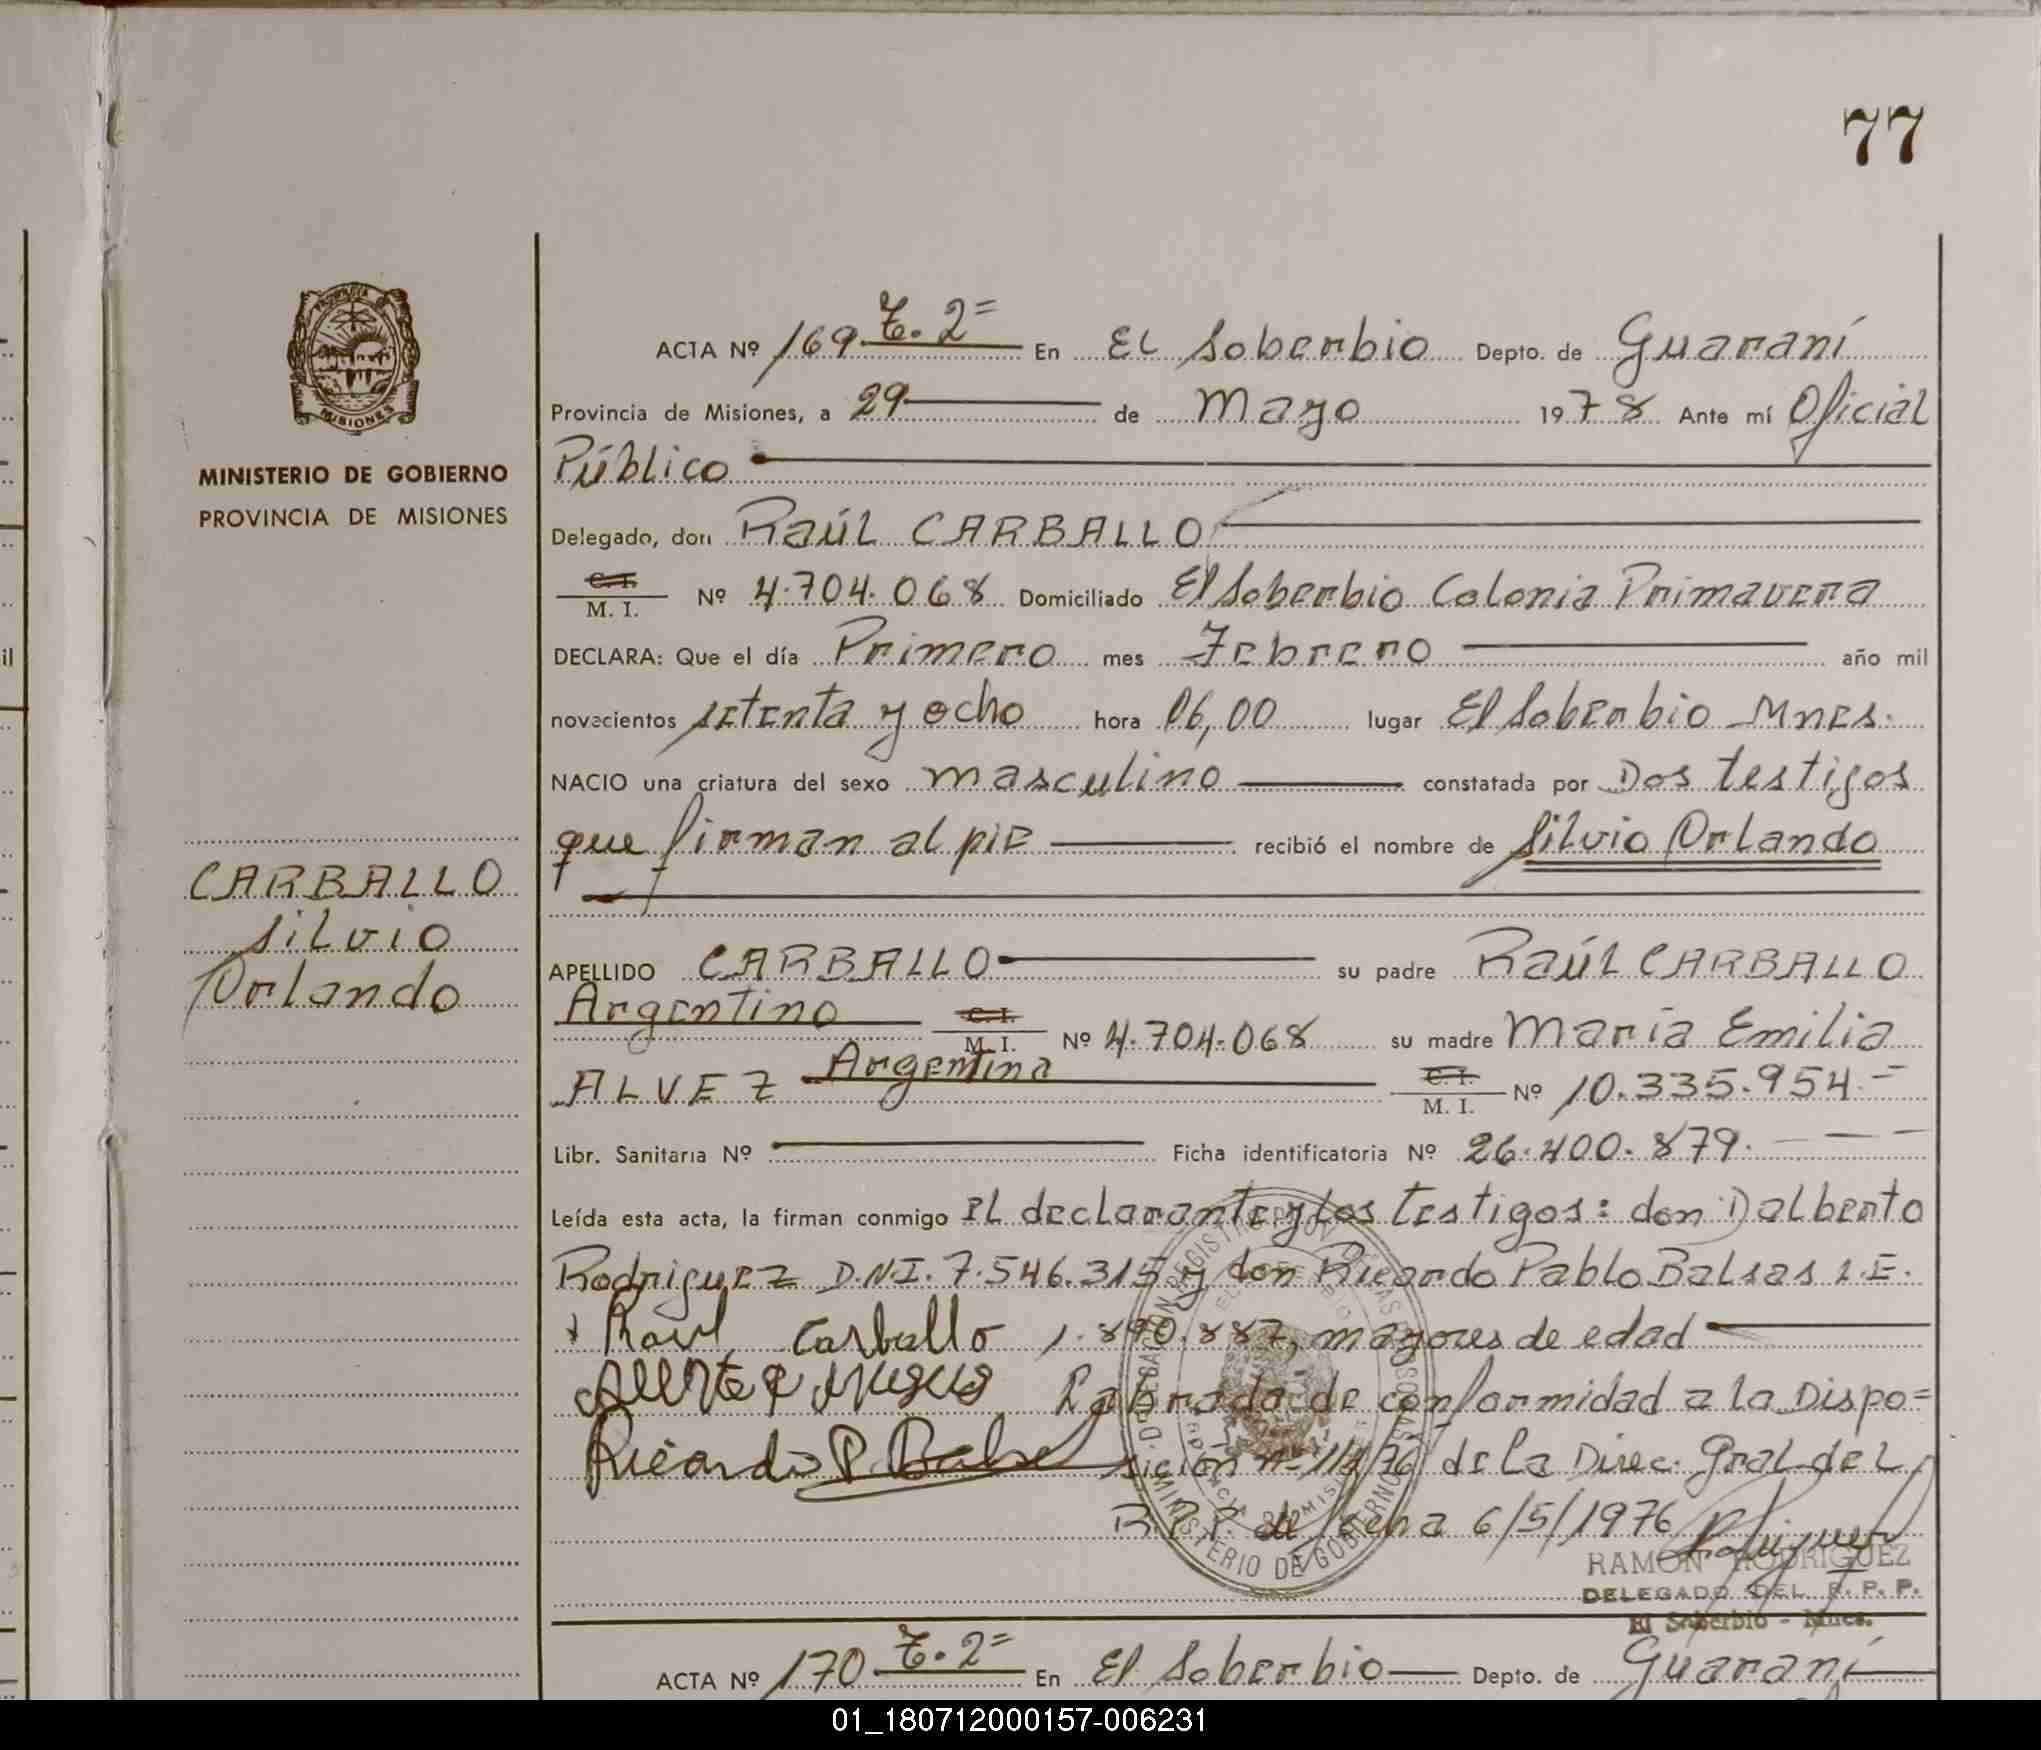 77
ACTA Nº 169 T. 2= En El Soberbio Depto. de Guaraní
Provincia de Misiones, a 29 de Mayo 1978 Ante mí Oficial
Público
Delegado, don Raúl CARBALLO
C. I.
M. I. Nº 4.704.068 Domiciliado El Soberbio Colonia Primavera
DECLARA: Que el día Primero mes Febrero año mil
novecientos setenta y ocho hora 06,00 lugar El Soberbio Mnes.
NACIO una criatura del sexo masculino constatada por Dos testigos
que firman al pie recibió el nombre de Silvio Orlando
APELLIDO CARBALLO su padre Raúl CARBALLO
Argentino C. I. M. I. Nº 4.704.068 su madre María Emilia
ALVEZ Argentina C. I. M. I. Nº 10.335.954.=
Libr. Sanitaria Nº Ficha identificatoria Nº 26.400.879.
Leída esta acta, la firman conmigo el declarante y los testigos: don Dalberto
Rodriguez D.N.I. 7.546.315 y don Ricardo Pablo Balsas L.E.
Raul Carballo 1.890.887, mayores de edad
Labrada de conformidad a la Dispo=
Ricardo P. sición nº de la Direc. Gral del
R.P.P. de fecha 6/5/1976
RAMON RODRIGUEZ
DELEGADO DEL R. P. P.
El Soberbio - Mnes.
ACTA Nº 170 T. 2= En El Soberbio Depto. de Guaraní
MISIONES
MINISTERIO DE GOBIERNO
PROVINCIA DE MISIONES
CARBALLO
Silvio
Orlando
MINISTERIO DE GOBIERNO
il
01_180712000157-006231